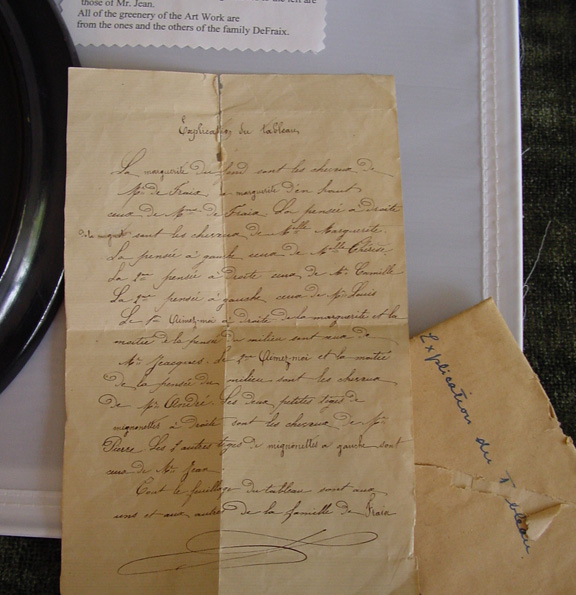 those of Mr. Jean.
All of the greenery of the Art Work are
from the ones and the others of the family DeFraix.
Explication du tableau
La marguerite du fond sont les cheveux de
Mr de Fraix la marguerite d'en haut
ceux de Mme de Fraix La pensée à droite
de la marguerite sont les cheveux de Melle Marguerite.
La pensée à gauche ceux de Melle Thérèse
La 2me pensée à droite ceux de Mr Camille
La 2me pensée à gauche, ceux de Mr Louis
Le 1er Aimez-moi à droite de la marguerite et la
moitié de la pensée du milieu sont ceux de
Mr Jacques. Le 2me Aimez-moi et la moitié
de la pensée du milieu sont les cheveux
de Mr André. Les deux petites tiges de
mignonettes à droite sont les cheveux de Mr
Pierre. Les 2 autres tiges de mignonettes à gauche sont
ceux de Mr Jean
Tout le feuillage du tableau sont aux
uns et aux autres de la famille de Fraix
Explication du Tableau